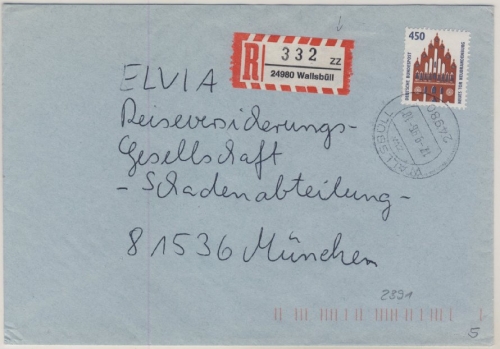 R 332 zz
24980 Wallsbüll
450
DEUTSCHE BUNDESPOST
24980
WALLSBÜLL
ELVIA
Reiseversicherungs-
Gesellschaft
- Schadenabteilung -
81536 München
2391
5